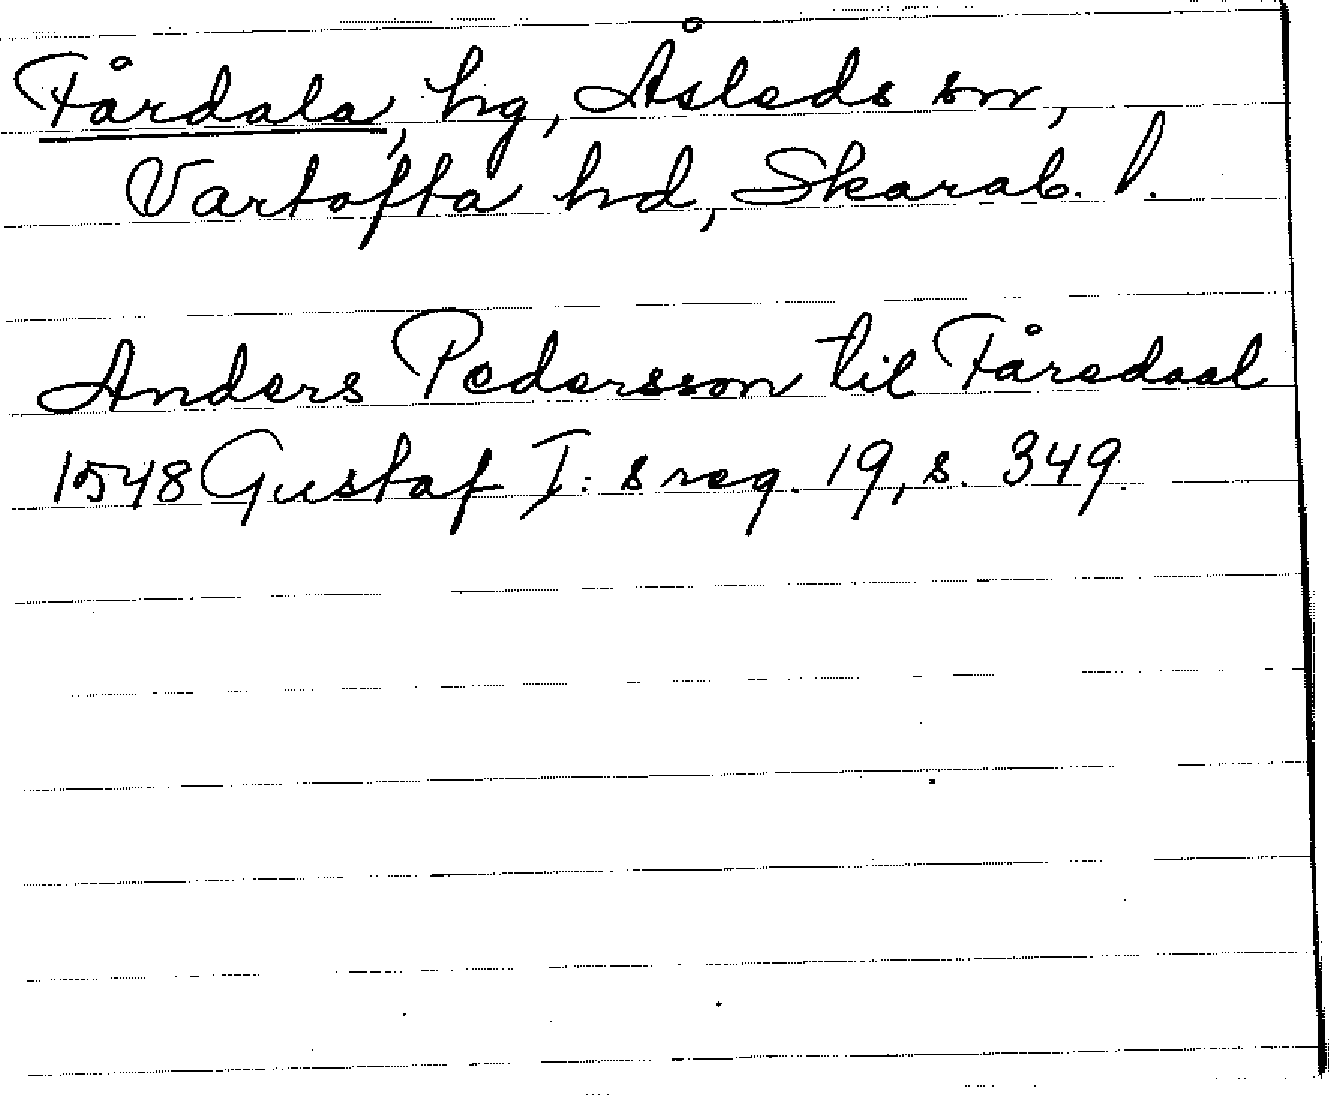 Fårdala, hg, Åsleds sn,
Vartofta hd, Skarab. l.
Anders Pedersson til Fåredaal
1548 Gustaf I:s reg. 19, s. 349.